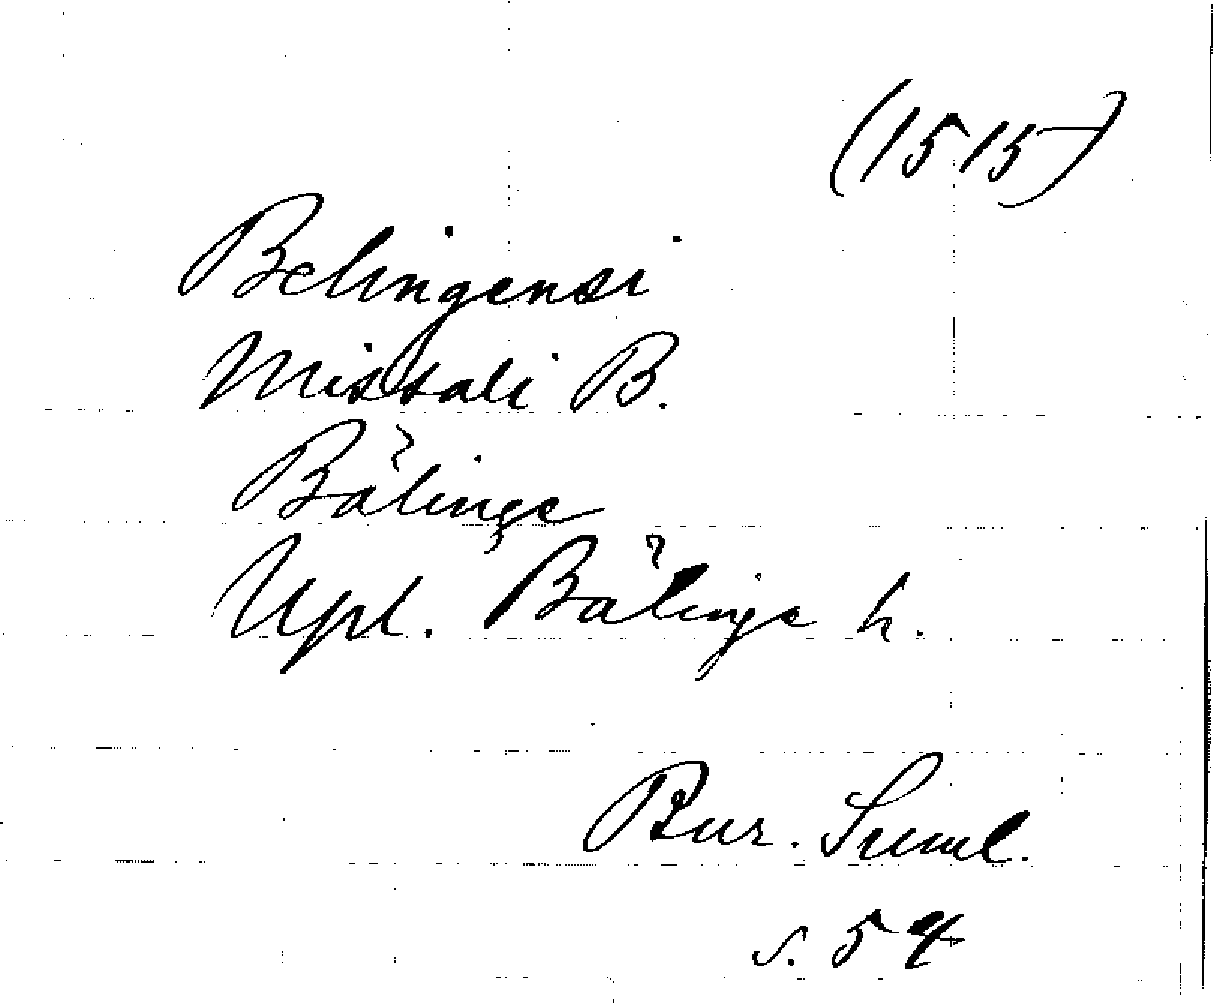 (1515)
Belingensi
Missali B.
Bälinge
Upl. Bälinge h.
Bur. Suml.
s. 54